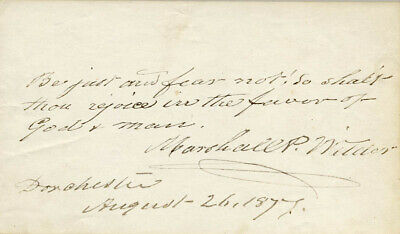 Be just and fear not! so shalt
thou rejoice in the favor of
God & man.
Marshall P. Wilder
Dorchester
August 26, 1877.